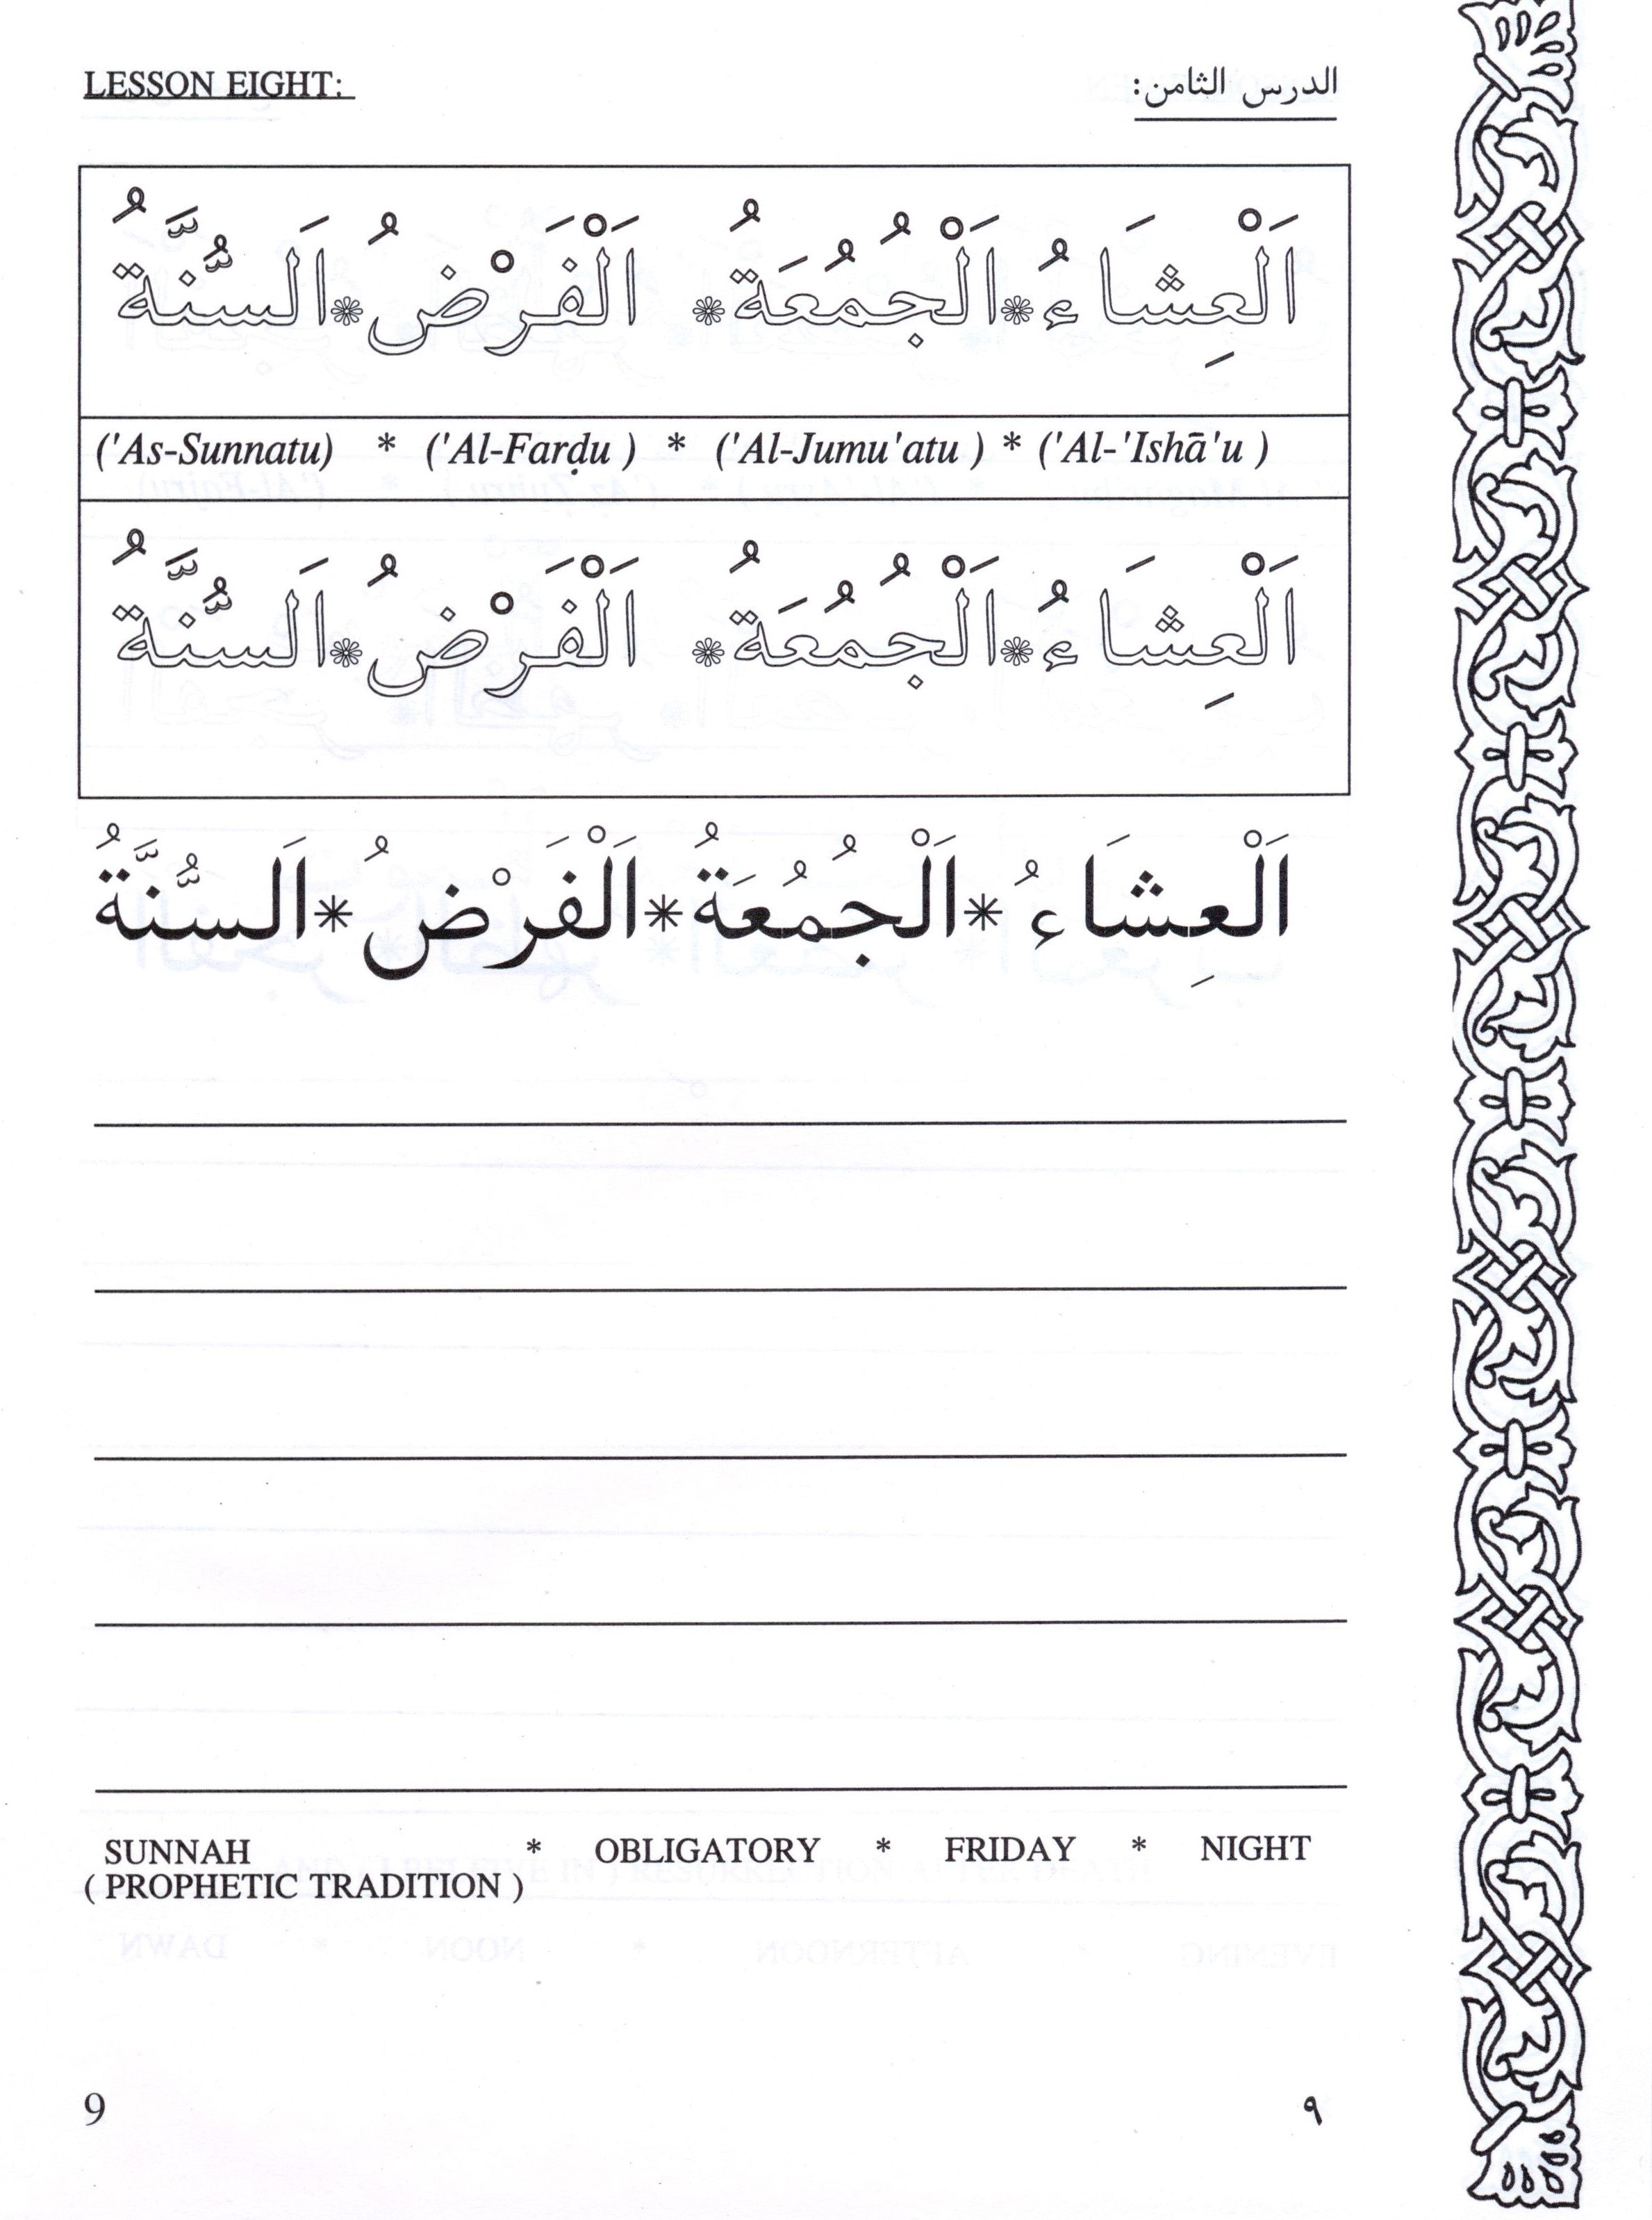 LESSON EIGHT: الدرس الثامن:
اَلْعِشَاءُ * اَلْجُمُعَةُ * اَلْفَرْضُ * اَلسُّنَّةُ
('As-Sunnatu) * ('Al-Farḍu ) * ('Al-Jumu'atu ) * ('Al-'Ishā'u )
اَلْعِشَاءُ * اَلْجُمُعَةُ * اَلْفَرْضُ * اَلسُّنَّةُ
اَلْعِشَاءُ * اَلْجُمُعَةُ * اَلْفَرْضُ * اَلسُّنَّةُ
SUNNAH * OBLIGATORY * FRIDAY * NIGHT
( PROPHETIC TRADITION )
9 ٩